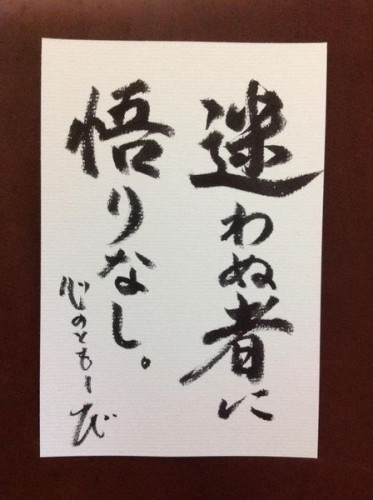 迷わぬ者に
悟りなし。
心のともしび